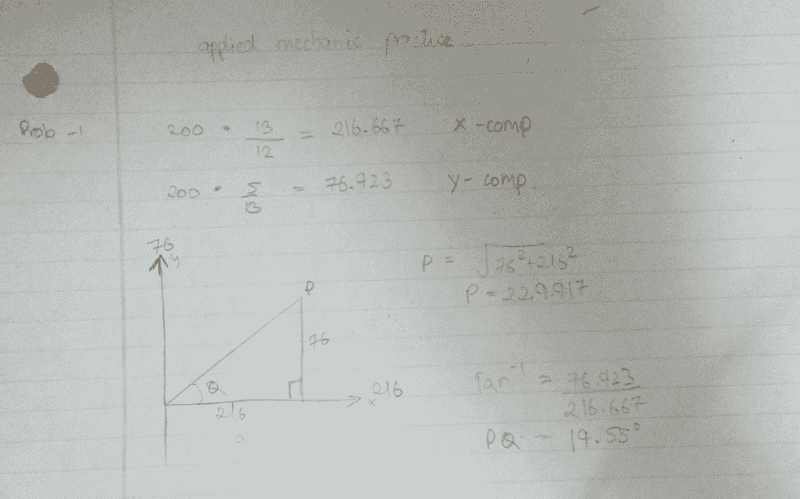 applied mechanic practice
Prob -1
200 · 13/12 = 216.667 x-comp
200 · 5/13 = 76.923 y-comp.
76
y
P = √76²+216²
P = 229.917
P
76
θ
216
x
216
Tan⁻¹ = 76.923/216.667
Pθ = 19.55°